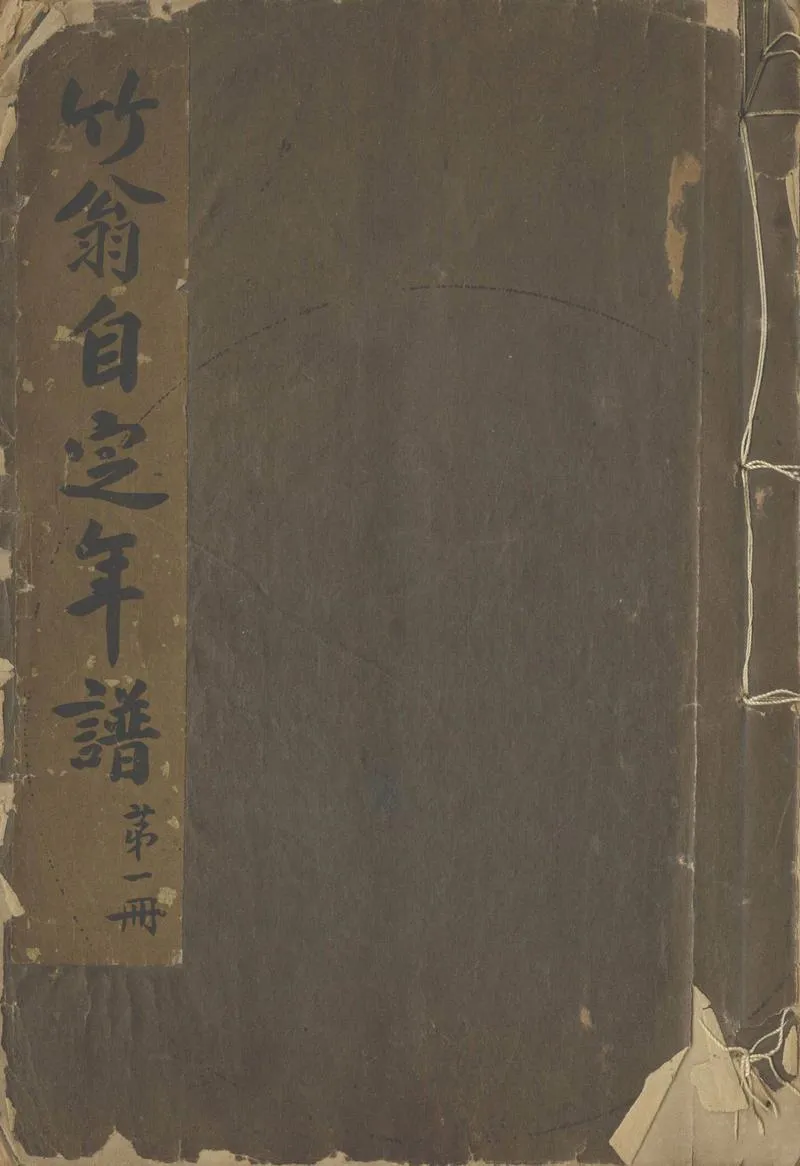 竹翁自定年譜
苐一冊